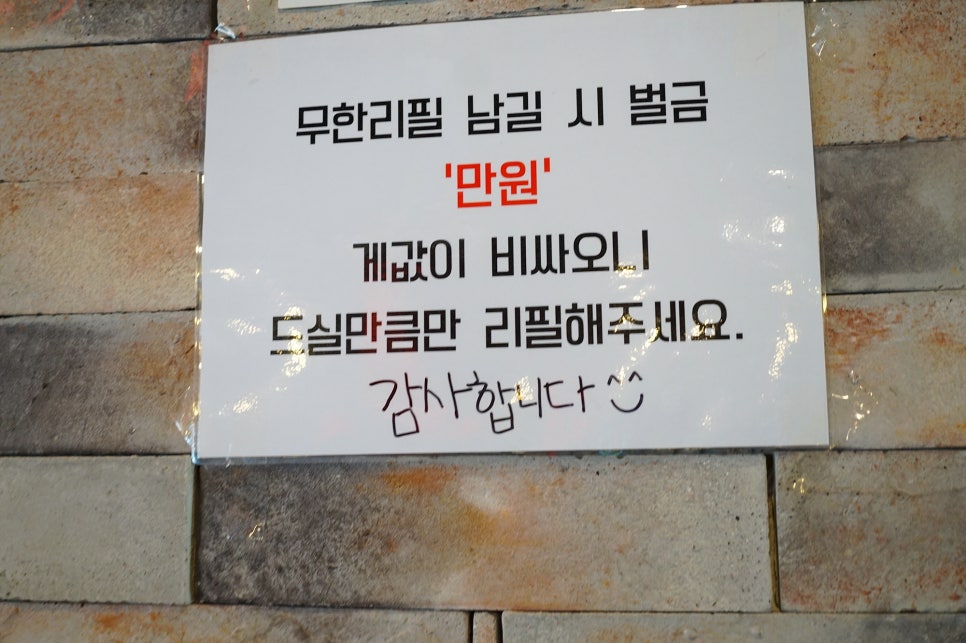 무한리필 남길 시 벌금
'만원'
게값이 비싸오니
드실만큼만 리필해주세요.
감사합니다 ^^